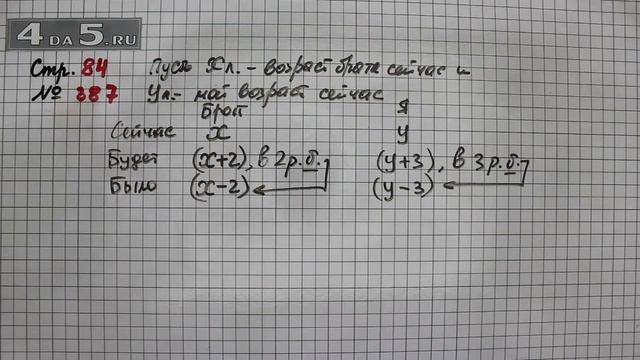 4DA5.RU
Стр. 84 Пусть Х л. - возраст брата сейчас и
№ 387 У л. - мой возраст сейчас
Брат Я
Сейчас х у
Будет (х+2), в 2 р. б. (у+3), в 3 р. б.
Было (х-2) (у-3)